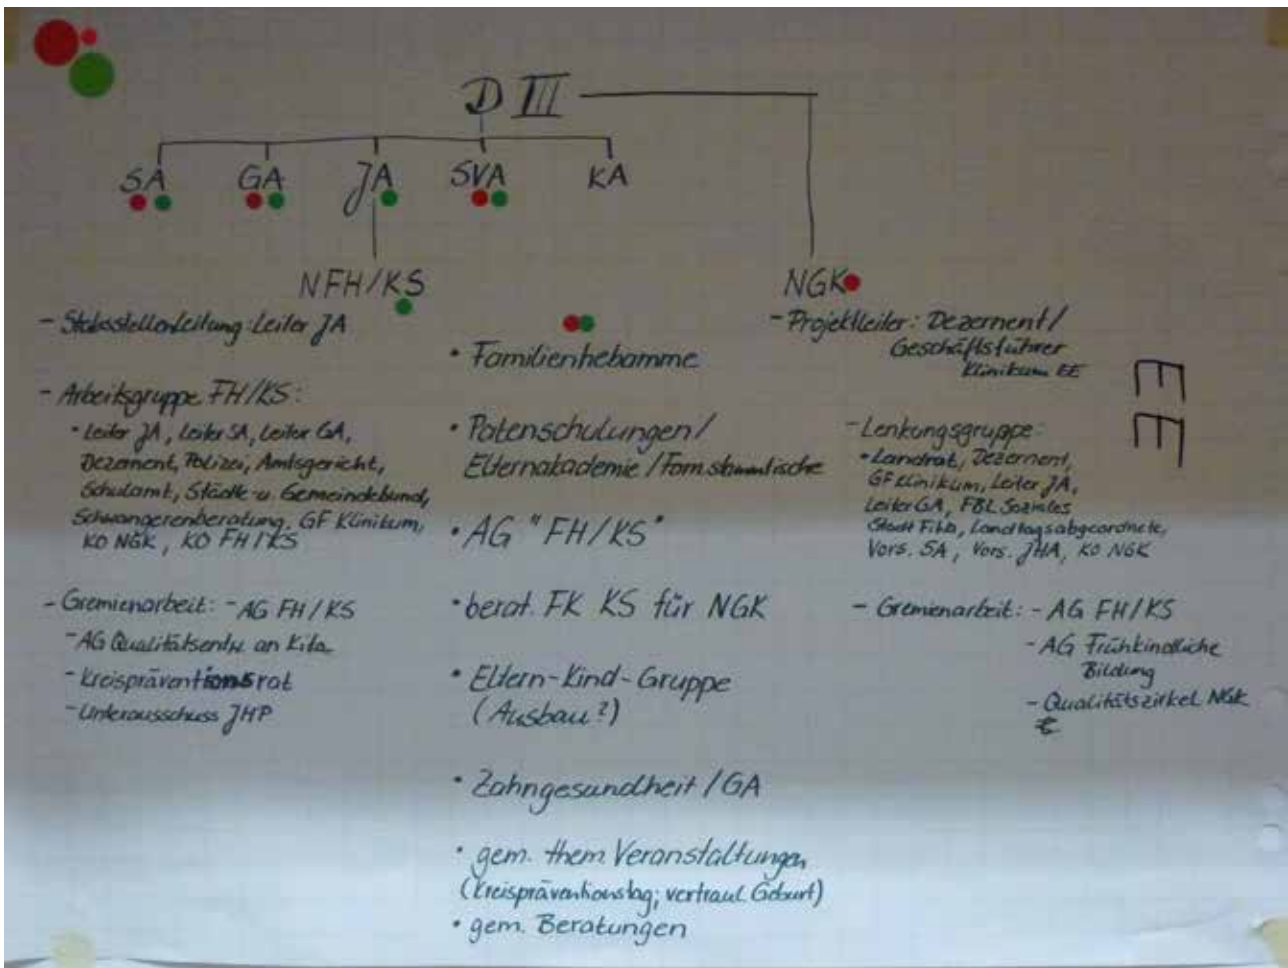 D III
SA GA JA SVA KA
NFH/KS
- Stabsstellenleitung: Leiter JA
- Arbeitsgruppe FH/KS:
• Leiter JA, Leiter SA, Leiter GA,
Dezernent, Polizei, Amtsgericht,
Schulamt, Städte- u. Gemeindebund,
Schwangerenberatung, GF Klinikum,
KO NGK, KO FH/KS
- Gremienarbeit: - AG FH/KS
- AG Qualitätsentw an Kita
- Kreispräventionsrat
- Unterausschuss JHP
• Familienhebamme
• Patenschulungen/
Elternakademie/Fam.stammtische
• AG "FH/KS"
• berat. FK KS für NGK
• Eltern-Kind-Gruppe
(Ausbau?)
• Zahngesundheit/GA
• gem. them. Veranstaltungen
(Kreispräventionstag; vertraul. Geburt)
• gem. Beratungen
NGK
- Projektleiter: Dezernent/
Geschäftsführer
Klinikum EE
- Lenkungsgruppe:
• Landrat, Dezernent,
GF Klinikum, Leiter JA,
Leiter GA, FBL Soziales
Stadt Fiba, Landtagsabgeordnete,
Vors. SA, Vors. JHA, KO NGK
- Gremienarbeit: - AG FH/KS
- AG Frühkindliche
Bildung
- Qualitätszirkel NGK
EE